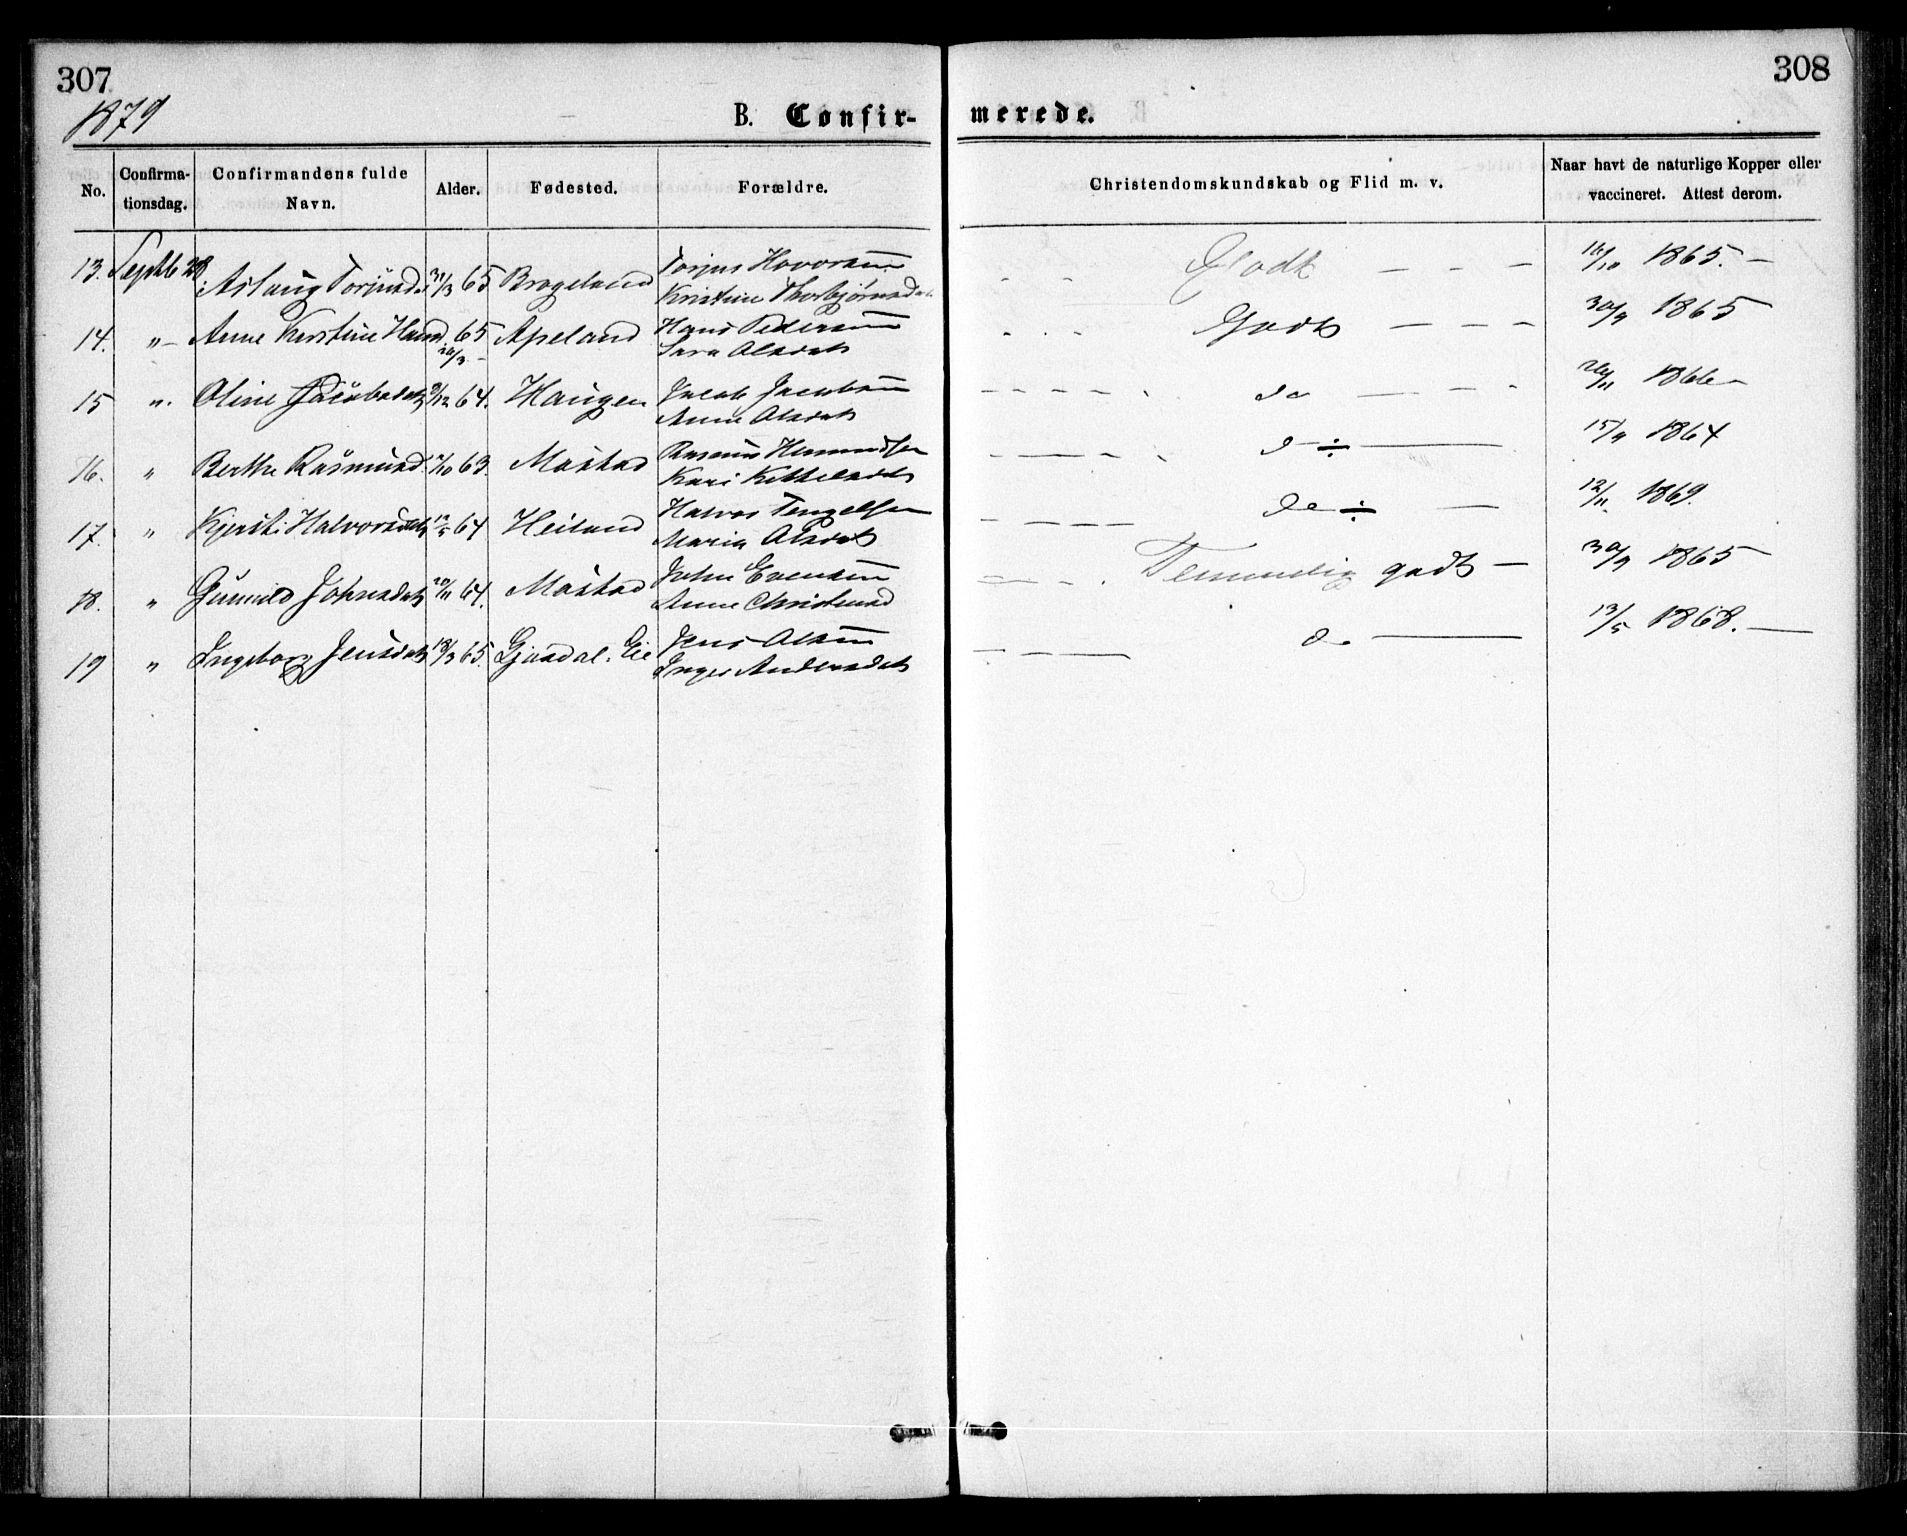 307
308
1879
B. Confir-
merede.
No.
Confirma-
tionsdag.
Confirmandens fulde
Navn.
Alder.
Fødested.
Forældre.
Christendomskundskab og Flid m. v.
Naar havt de naturlige Kopper eller
vaccineret. Attest derom.
13. Septb 28 Aslaug 31/3 65 Brogeland
Kristine Thorbjørnsd
Godt — — — 1865. —
14. " Anne Kirstine Hansd 65 Apeland Hans Pedersen
26/3 Sara Olsdat
Godt — — — 30/9 1865
15 " Oline Jacobsdat 64. Haugen Jacob Jacobsen
Anne Olsdat
do — — — 1866
16. " Berthe Rasmusd. 63. Måstad
Kari Kittelsdt
do ÷ — 15/9 1864
17. " Kjersti Halvorsdat 64 Heiland Halvor Tengelsen
Maria Olsdat
do ÷ — 12/11 1869.
18. " Gunnild Johnsdat 20/11 64. Måstad John Evensen
Anne Christensd
Temmelig godt — 30/9 1865
19 " Ingeborg Jensdat 18/3 65. Gjøsdal. Eie Jens Olsen
Inger Andersdat
do — 13/5 1868. —